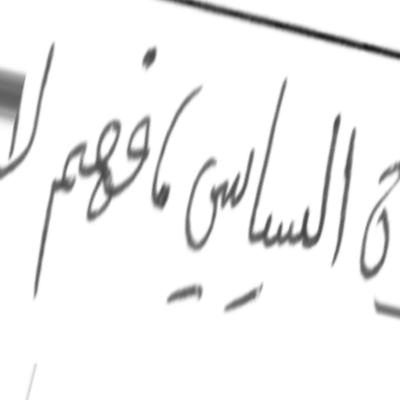 السياسي مافهم لا